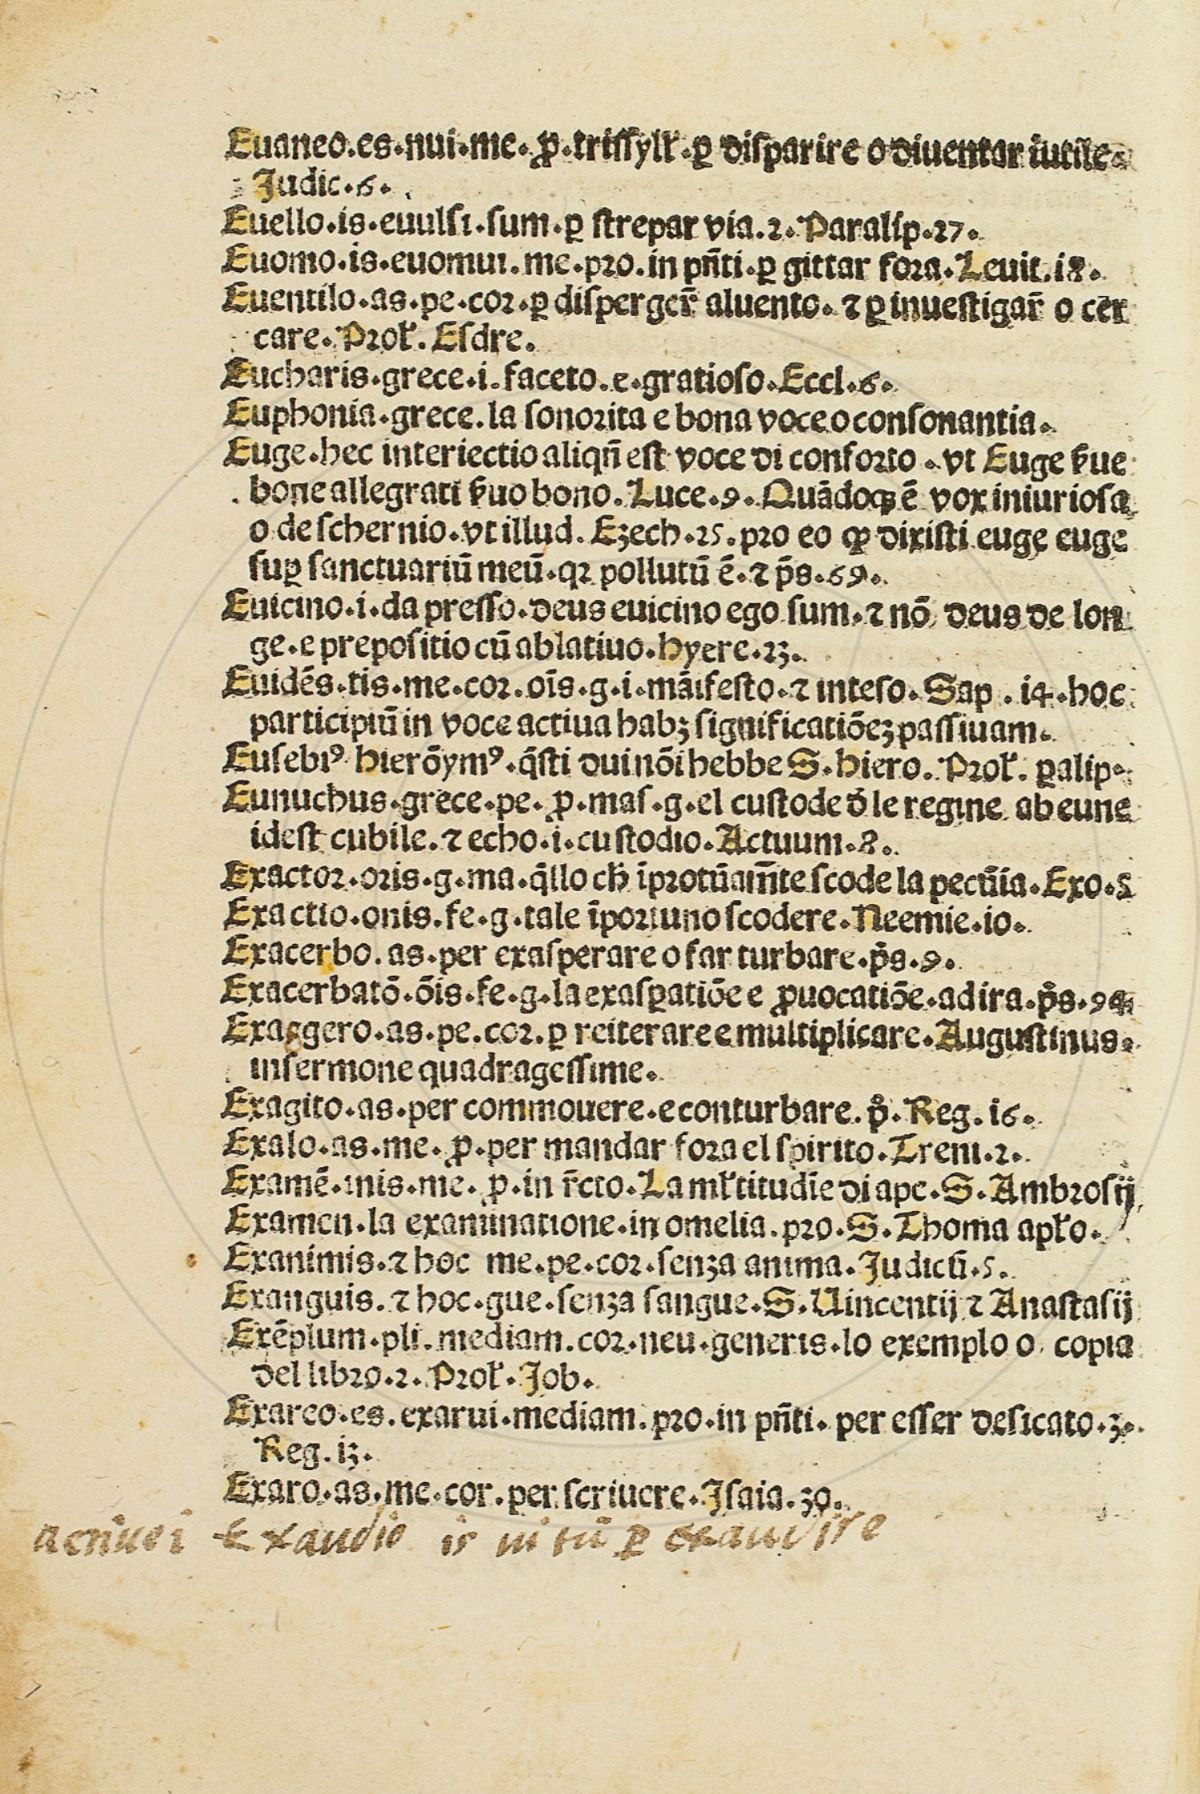 Euaneo.es.nui.me.ꝓ.trissylƚ.ꝑ disparire o diuentar īutile
Judic.6.
Euello.is.euulsi.sum.ꝑ strepar via.2.Paralip.27.
Euomo.is.euomui.me.pro.in pñti.ꝑ gittar fora.Leuit.i8.
Euentilo.as.pe.cor.ꝑ disperger̃ aluento.⁊ ꝑ inuestigar̃ o cer
care.Prol̃.Esdre.
Eucharis.grece.i.faceto.e.gratioso.Eccl.6.
Euphonia.grece.la sonorita e bona voce o consonantia.
Euge.hec interiectio aliqñ est voce di conforto.vt Euge s̃ue
bone allegrati s̃uo bono.Luce.9.Quādoqꝫ ē vox iniuriosa
o de schernio.vt illud.Ezech.25.pro eo ꝙ dixisti euge euge
suꝑ sanctuariū meū.qꝛ pollutū ē.⁊ p̄s.69.
Euicino.i.da presso.deus euicino ego sum.⁊ nō deus de lon
ge.e prepositio cū ablatiuo.Hyere.23.
Euidēs.tis.me.cor.oīs.g.i.māifesto.⁊ inteso.Sap.i4.hoc
participiū in voce actiua habꝫ significatiōeꝫ passiuam.
Eusebiꝰ Hierōymꝰ.q̄sti dui nōi hebbe S.Hiero.Prol̃.ꝑalip.
Eunuchus.grece.pe.ꝓ.mas.g.el custode d̄ le regine ab eune
idest cubile.⁊ echo.i.custodio.Actuum.8.
Exactor.oris.g.ma.q̄llo ch̄ īprotūam̄te scode la pecūia.Exo.5
Exactio.onis.fe.g.tale īportuno scodere.Neemie.io.
Exacerbo.as.per exasperare o far turbare.p̄s.9.
Exacerbatō.ōis.fe.g.la exasꝑatiōe e ꝓuocatiōe.ad ira.p̄s.94
Exaggero.as.pe.cor.ꝑ reiterare e multiplicare.Augustinus.
in sermone quadragessime.
Exagito.as.per commouere.e conturbare.pº.Reg.i6.
Exalo.as.me.ꝓ.per mandar fora el spirito.Treni.2.
Examē.inis.me.ꝓ.in r̄cto.La ml̃titudīe di ape.S.Ambrosij
Examen.la examinatione.in omelia.pro.S.Thoma apl̃o.
Exanimis.⁊ hoc me.pe.cor.senza anima.Judicū.5.
Exanguis.⁊ hoc.gue.senza sangue.S.Uincentij ⁊ Anastasij
Exēplum.pli.mediam.cor.neu.generis.lo exemplo o copia
del libro.2.Prol̃.Job.
Exareo.es.exarui.mediam.pro.in pñti.per esser desicato.3.
Reg.i3.
Exaro.as.me.cor.per scriuere.Isaia.30.
Exaudio is iui tū ꝑ exaudire